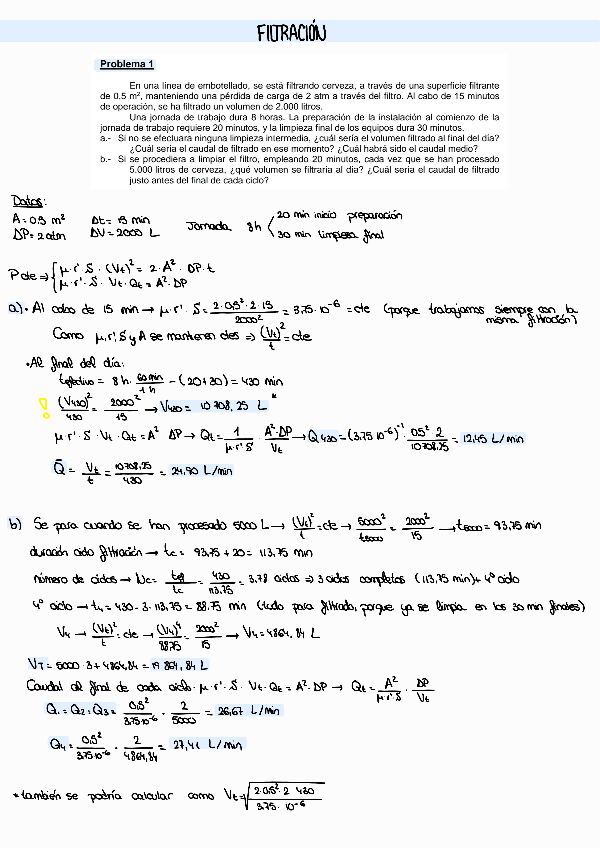 FILTRACIÓN
Problema 1
En una línea de embotellado, se está filtrando cerveza, a través de una superficie filtrante
de 0,5 m², manteniendo una pérdida de carga de 2 atm a través del filtro. Al cabo de 15 minutos
de operación, se ha filtrado un volumen de 2.000 litros.
Una jornada de trabajo dura 8 horas. La preparación de la instalación al comienzo de la
jornada de trabajo requiere 20 minutos, y la limpieza final de los equipos dura 30 minutos.
a.- Si no se efectuara ninguna limpieza intermedia, ¿cuál sería el volumen filtrado al final del día?
¿Cuál sería el caudal de filtrado en ese momento? ¿Cuál habrá sido el caudal medio?
b.- Si se procediera a limpiar el filtro, empleando 20 minutos, cada vez que se han procesado
5.000 litros de cerveza, ¿qué volumen se filtraría al día? ¿Cuál sería el caudal de filtrado
justo antes del final de cada ciclo?
Datos:
A = 0.5 m² Δt = 15 min Jornada 8h 20 min inicio preparación
ΔP = 2 atm ΔV = 2000 L 30 min limpieza final
P cte ⇒ { μ·r'·S·(Vt)² = 2·A²·ΔP·t
μ·r'·S·Vt·Qt = A²·ΔP
a)· Al cabo de 15 min → μ·r'·S = 2·0.5²·2·15 / 2000² = 3.75·10⁻⁶ = cte (porque trabajamos siempre con la
misma filtración)
Como μ, r', S y A se mantienen ctes ⇒ (Vt)²/t = cte
·Al final del día:
t efectivo = 8 h · 60 min/1 h − (20+30) = 430 min
(V430)²/430 = 2000²/15 → V430 = 10708,25 L *
μ·r'·S·Vt·Qt = A² ΔP → Qt = 1/μ·r'·S · A²·ΔP/Vt → Q430 = (3.75·10⁻⁶)⁻¹ · 0.5²·2/10708.25 = 12,45 L/min
Q̄ = Vt/t = 10708.25/430 = 24,90 L/min
b) Se para cuando se han procesado 5000 L → (Vt)²/t = cte → 5000²/t5000 = 2000²/15 → t5000 = 93,75 min
duración ciclo filtración → tc = 93,75 + 20 = 113,75 min
número de ciclos → Nc = tef/tc = 430/113.75 = 3.78 ciclos ⇒ 3 ciclos completos (113,75 min) + 4º ciclo
4º ciclo → t4 = 430 − 3·113,75 = 88.75 min (todo para filtrado, porque ya se limpia en los 30 min finales)
V4 → (Vt)²/t = cte → (V4)⁴/88.75 = 2000²/15 → V4 = 4864,84 L
VT = 5000·3 + 4864,84 = 19 864,84 L
Caudal al final de cada ciclo· μ·r'·S·Vt·Qt = A²·ΔP → Qt = A²/μ·r'·S · ΔP/Vt
Q1 = Q2 = Q3 = 0.5²/3.75·10⁻⁶ · 2/5000 = 26,67 L/min
Q4 = 0.5²/3.75·10⁻⁶ · 2/4864,84 = 27,41 L/min
*también se podría calcular como Vt = √(2·0.5²·2·430 / 3.75·10⁻⁶)